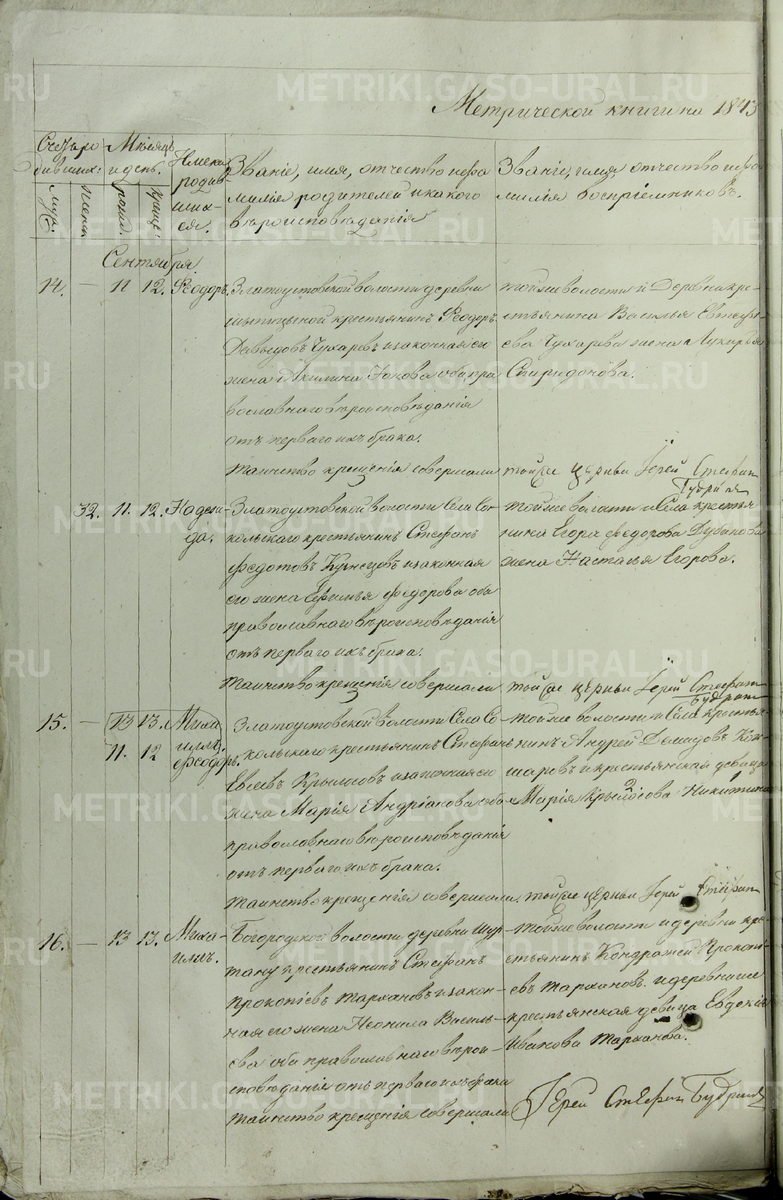 Метрической книги на 1843
Счетъ ро
дившихся:
Мѣсяцъ
и день.
Имена
родив-
ших-
ся.
Званіе, имя, отчество и фа
милія родителей и какого
вѣроисповѣданія
Званіе, имя отчество и фа
милія воспріемниковъ.
муж:
жен:
рожд.
крещ:
Сентября
14. — 11 12. Ѳеодоръ.
Златоустовской волости деревни
крестьянинъ Ѳеодоръ
Давыдовъ Чухаревъ и законная его
жена Акилина обы пра
вославнаго вѣроисповѣданія
отъ перваго ихъ брака.
Таинство крещенія совершали
той же волости и деревни кре-
стьянина Василья
Чухарева жена
Спиридонова.
той же церкви Іерей Стефан
Будрин
32. 11. 12. Надеж-
да.
Златоустовской волости Села Со
кольскаго крестьянинъ Стефанъ
Федотовъ Кузнецовъ и законная
его жена Ефимья Федорова обы
православнаго вѣроисповѣданія
отъ перваго ихъ брака.
Таинство крещенія совершали
той же волости и Села крестья
нина Егора Федорова
жена Настасья Егорова.
той же церкви Іерей Стефан
Будрин
15. — 13 13. Миха
илъ.
11. 12 Феодоръ.
Златоустовской волости Села Со-
кольскаго крестьянинъ Стефанъ
Евсеевъ Крылосовъ и законная его
жена Марія Андріанова обы
православнаго вѣроисповѣданія
отъ перваго ихъ брака.
Таинство крещенія совершали
той же волости и Села крестья-
нинъ Андрей Демидовъ Кож
шаровъ и крестьянская девица
Марія Крылосова Никитина
2
той же церкви Іерей Стефан
16. — 13 13. Миха
илъ.
Богородской волости деревни Шур
тану крестьянинъ Стефанъ
Прокопіевъ Тархановъ и закон-
ная его жена Неонила Василь-
ева обы православнаго вѣрои-
сповѣданія отъ перваго ихъ брака
таинство крещенія совершали
той же волости и деревни кре-
стьянинъ Кондратей Прокопі-
евъ Тархановъ и деревни
крестьянская девица Евдокия
Иванова Тарханова.
Іерей Стефан Будрин
METRIKI.GASO-URAL.RU